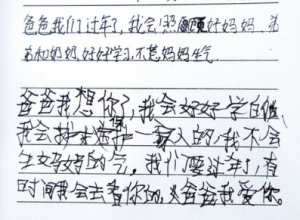 爸爸我们过年了,我会照顾好妈妈,弟
弟和奶奶,好好学习,不惹妈妈生气。
爸爸我想你了,我会好好学的,
我会 一家人的,我不会
生妈妈的气。我们要过年了,有
时间我会去看你的,爸爸我爱你。